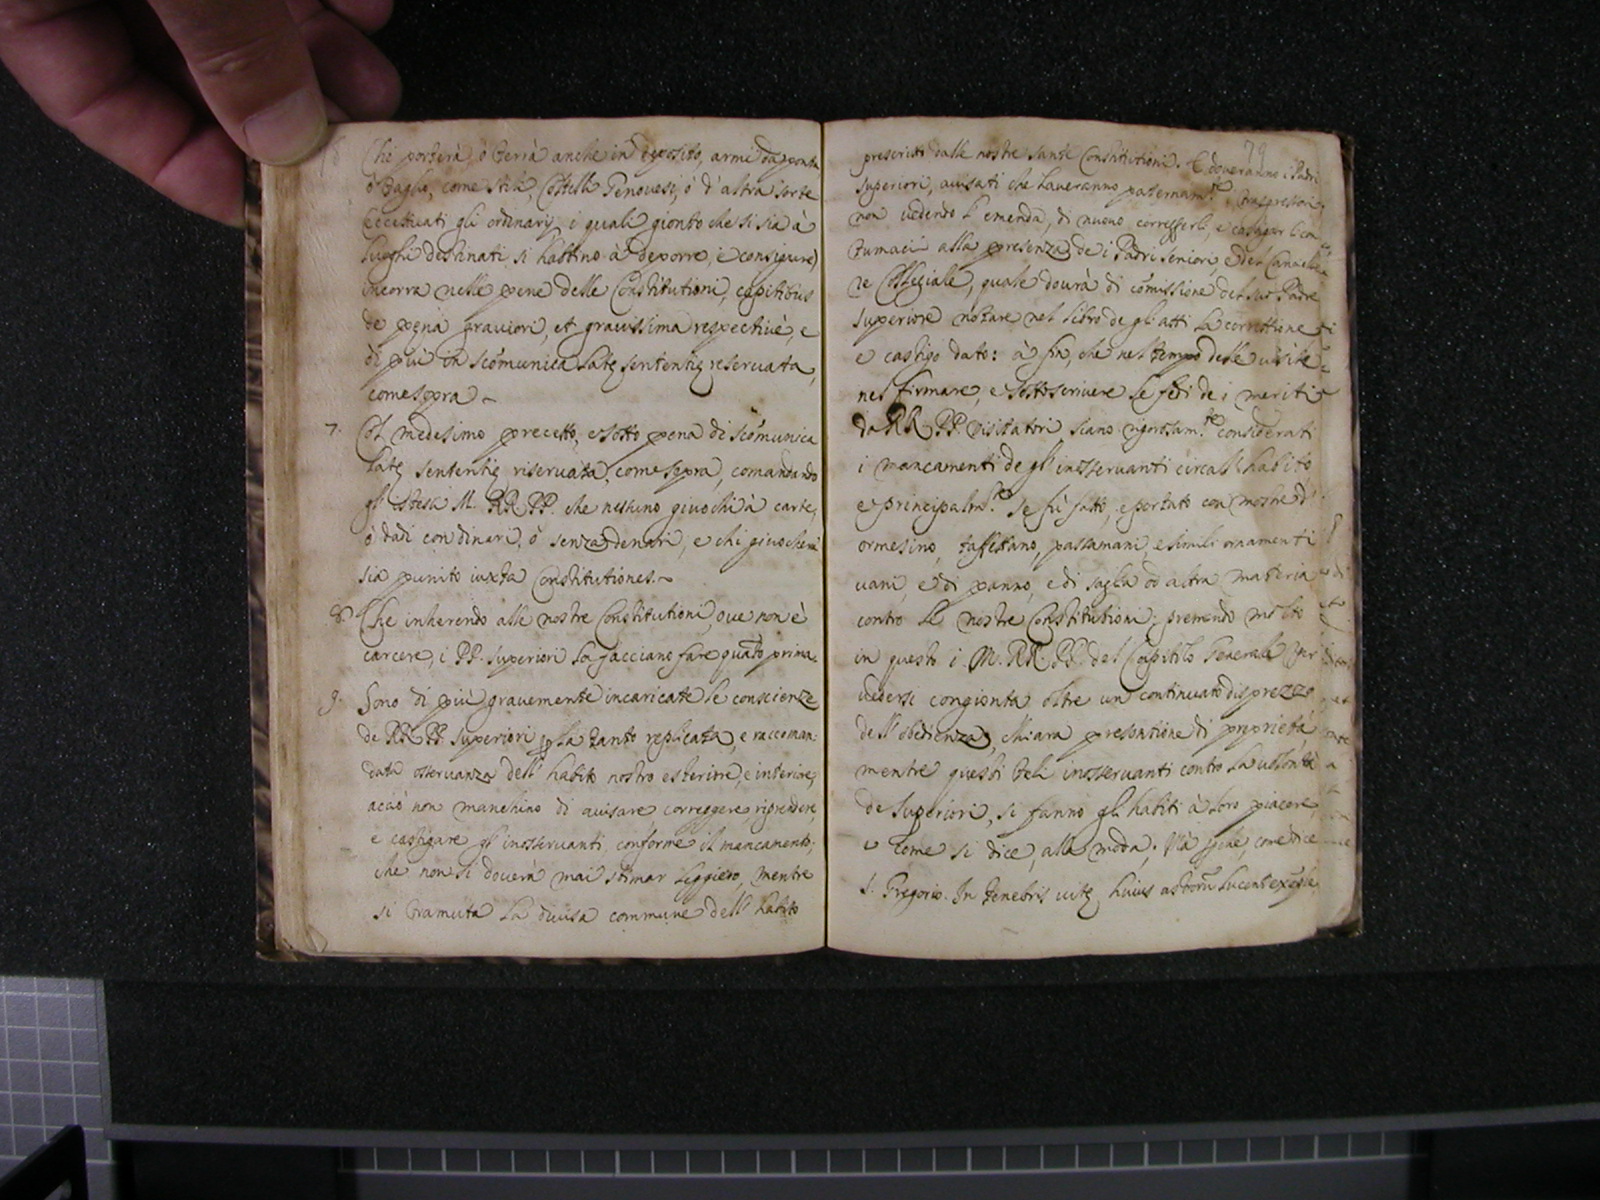 Chi porterà, ò terrà anche in deposito, armi da punta
ò taglio, come stili, Coltelli Genovesi, ò d'altra sorte
Eccettuati gli ordinarij, i quali gionto che si sia à
luoghi destinati si habbino à deporre, e consignare,
incorra nelle pene delle Constitutioni, capitibus
de pęna grauiori, et grauissima respectiuè, e
di più in scõmunica latę sententię reseruata,
come sopra ~
7. Col medesimo precetto, e sotto pena di scõmunica
latę sententię riseruata, come sopra, comandando
gl'istessi M. RR. PP. che nessuno giuochi à carte,
ò dadi con dinari, ò senza denari, e chi giuocherà
sia punito iuxta Constitutiones. ~
8. Che inherendo alle nostre Constitutioni, oue non è
carcere, i PP. Superiori la facciano fare quãto prima.
9. Sono di più grauemente incaricate le conscienze
de RR. PP. Superiori p la tanto replicata, e raccoman:
data osseruanza dell'habito nostro esteriore, e interiore,
acciò non manchino di auisare correggere, riprendere,
e castigare gl'inosseruanti conforme il mancamento;
che non si douerà mai stimar leggiero, mentre
si tramuta la diuisa commune dell'habito
79
prescritti dalle nostre sante Constitutioni. E doueranno i Padri
Superiori, auisati che haueranno paternam.te i trasgressori,
non uedendo l'emenda, di nuouo corregerli, e castigar li con
tumaci alla presenza de i Padri seniori, e del Cancellie
re Collegiale, quale dourà di cõmissione del suo Padre
Superiore notare nel libro de gl'atti la correttione,
e castigo dato: à fin, che nel tempo delle uisite
nel firmare, e sottoscriuere le fedi de i meriti
da RR. PP. Visitatori siano rigorosam.te considerati
i mancamenti de gl'inosseruanti circa l'habito
e principalm.te se fù fatto, e portato con mostre d'
ormesino, taffettano, passamani, e simili ornamenti
uani, e di panno, e di saglia od altra materia
contro le nostre Constitutioni; premendo molto
in questo i M. RR. PP. del Capitolo Generale per
uedersi congionta oltre un continuato disprezzo
dell'obedienza, chiara presontione di proprietà
mentre questi tali inosseruanti contro la uolontà
de Superiori, si fanno gl'habiti à loro piacere,
e come si dice, alla moda; Mà perche, come dice
S. Gregorio. In tenebris uitę huius astorũ lucent exẽpla,